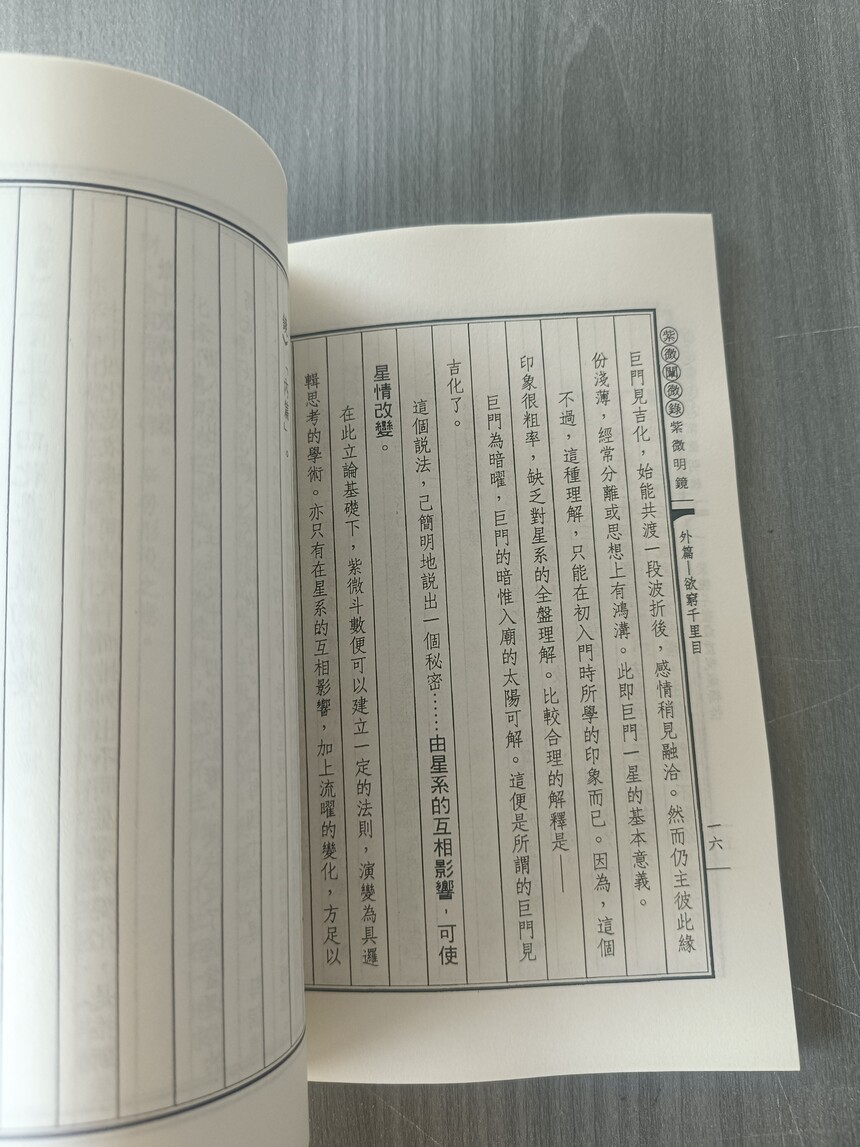 紫微闡微錄 紫微明鏡
外篇—欲窮千里目
一六
巨門見吉化，始能共渡一段波折後，感情稍見融洽。然而仍主彼此緣
份淺薄，經常分離或思想上有鴻溝。此即巨門一星的基本意義。
不過，這種理解，只能在初入門時所學的印象而已。因為，這個
印象很粗率，缺乏對星系的全盤理解。比較合理的解釋是——
巨門為暗曜，巨門的暗惟入廟的太陽可解。這便是所謂的巨門見
吉化了。
這個說法，己簡明地說出一個秘密……由星系的互相影響，可使
星情改變。
在此立論基礎下，紫微斗數便可以建立一定的法則，演變為具邏
輯思考的學術。亦只有在星系的互相影響，加上流曜的變化，方足以